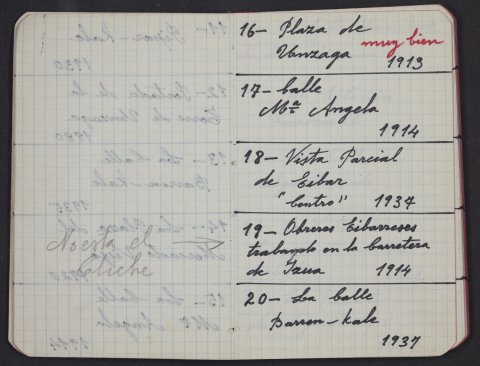 No está el
Cliche
16- Plaza de
Unzaga muy bien
1913
17- Calle
Mª Angela
1914
18- Vista Parcial
de Eibar
"Centro" 1937
19- Obreros Eibarreses
trabando en la Carretera
de Izua 1914
20- La Calle
Barren-kale
1937